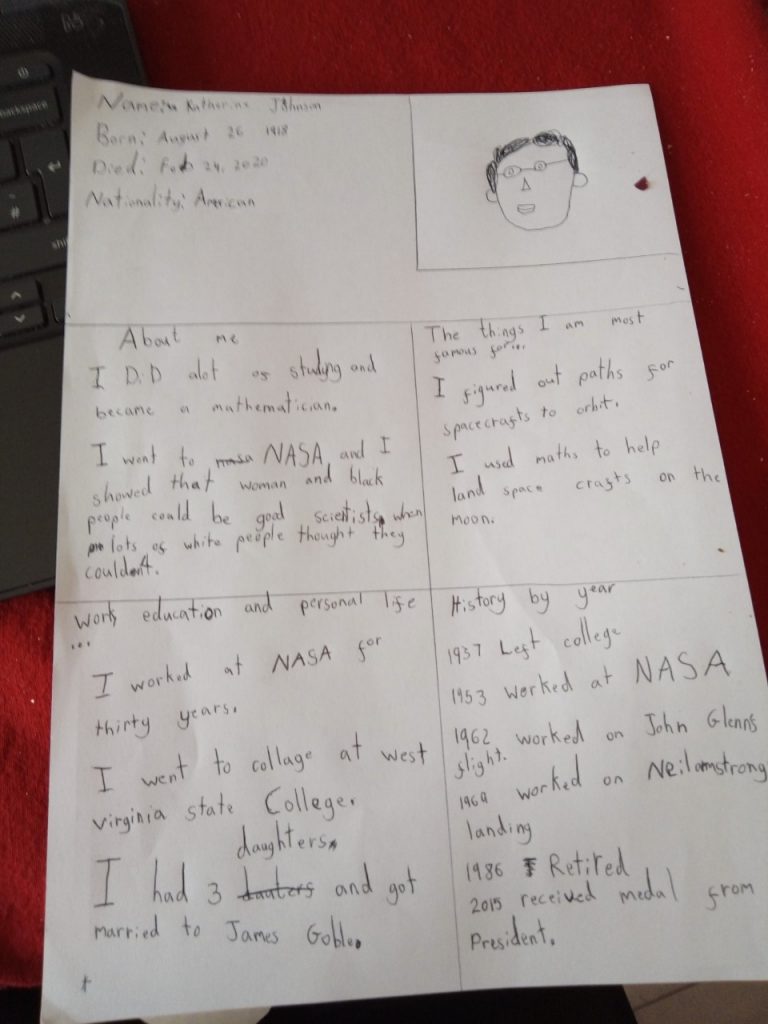 backspace
#
shi
Name: Katherine Johnson
Born: August 26 1918
Died: Feb 24, 2020
Nationality: American
About me
I DiD alot of studyng and
became a mathematician.
I went to nasa NASA and I
showed that woman and black
people could be good scientists, when
lots of white people thought they
couldent.
The things I am most
famous for...
I figured out paths for
spacecrafts to orbit.
I used maths to help
land space crafts on the
moon.
Work education and personal life
...
I worked at NASA for
thirty years.
I went to collage at west
virginia state College.
daughters.
I had 3 dauters and got
married to James Goble.
History by year
1937 Left college
1953 worked at NASA
1962 worked on John Glenns
flight.
1969 worked on Neil amstrong
landing
1986 Retired
2015 received medal from
President.